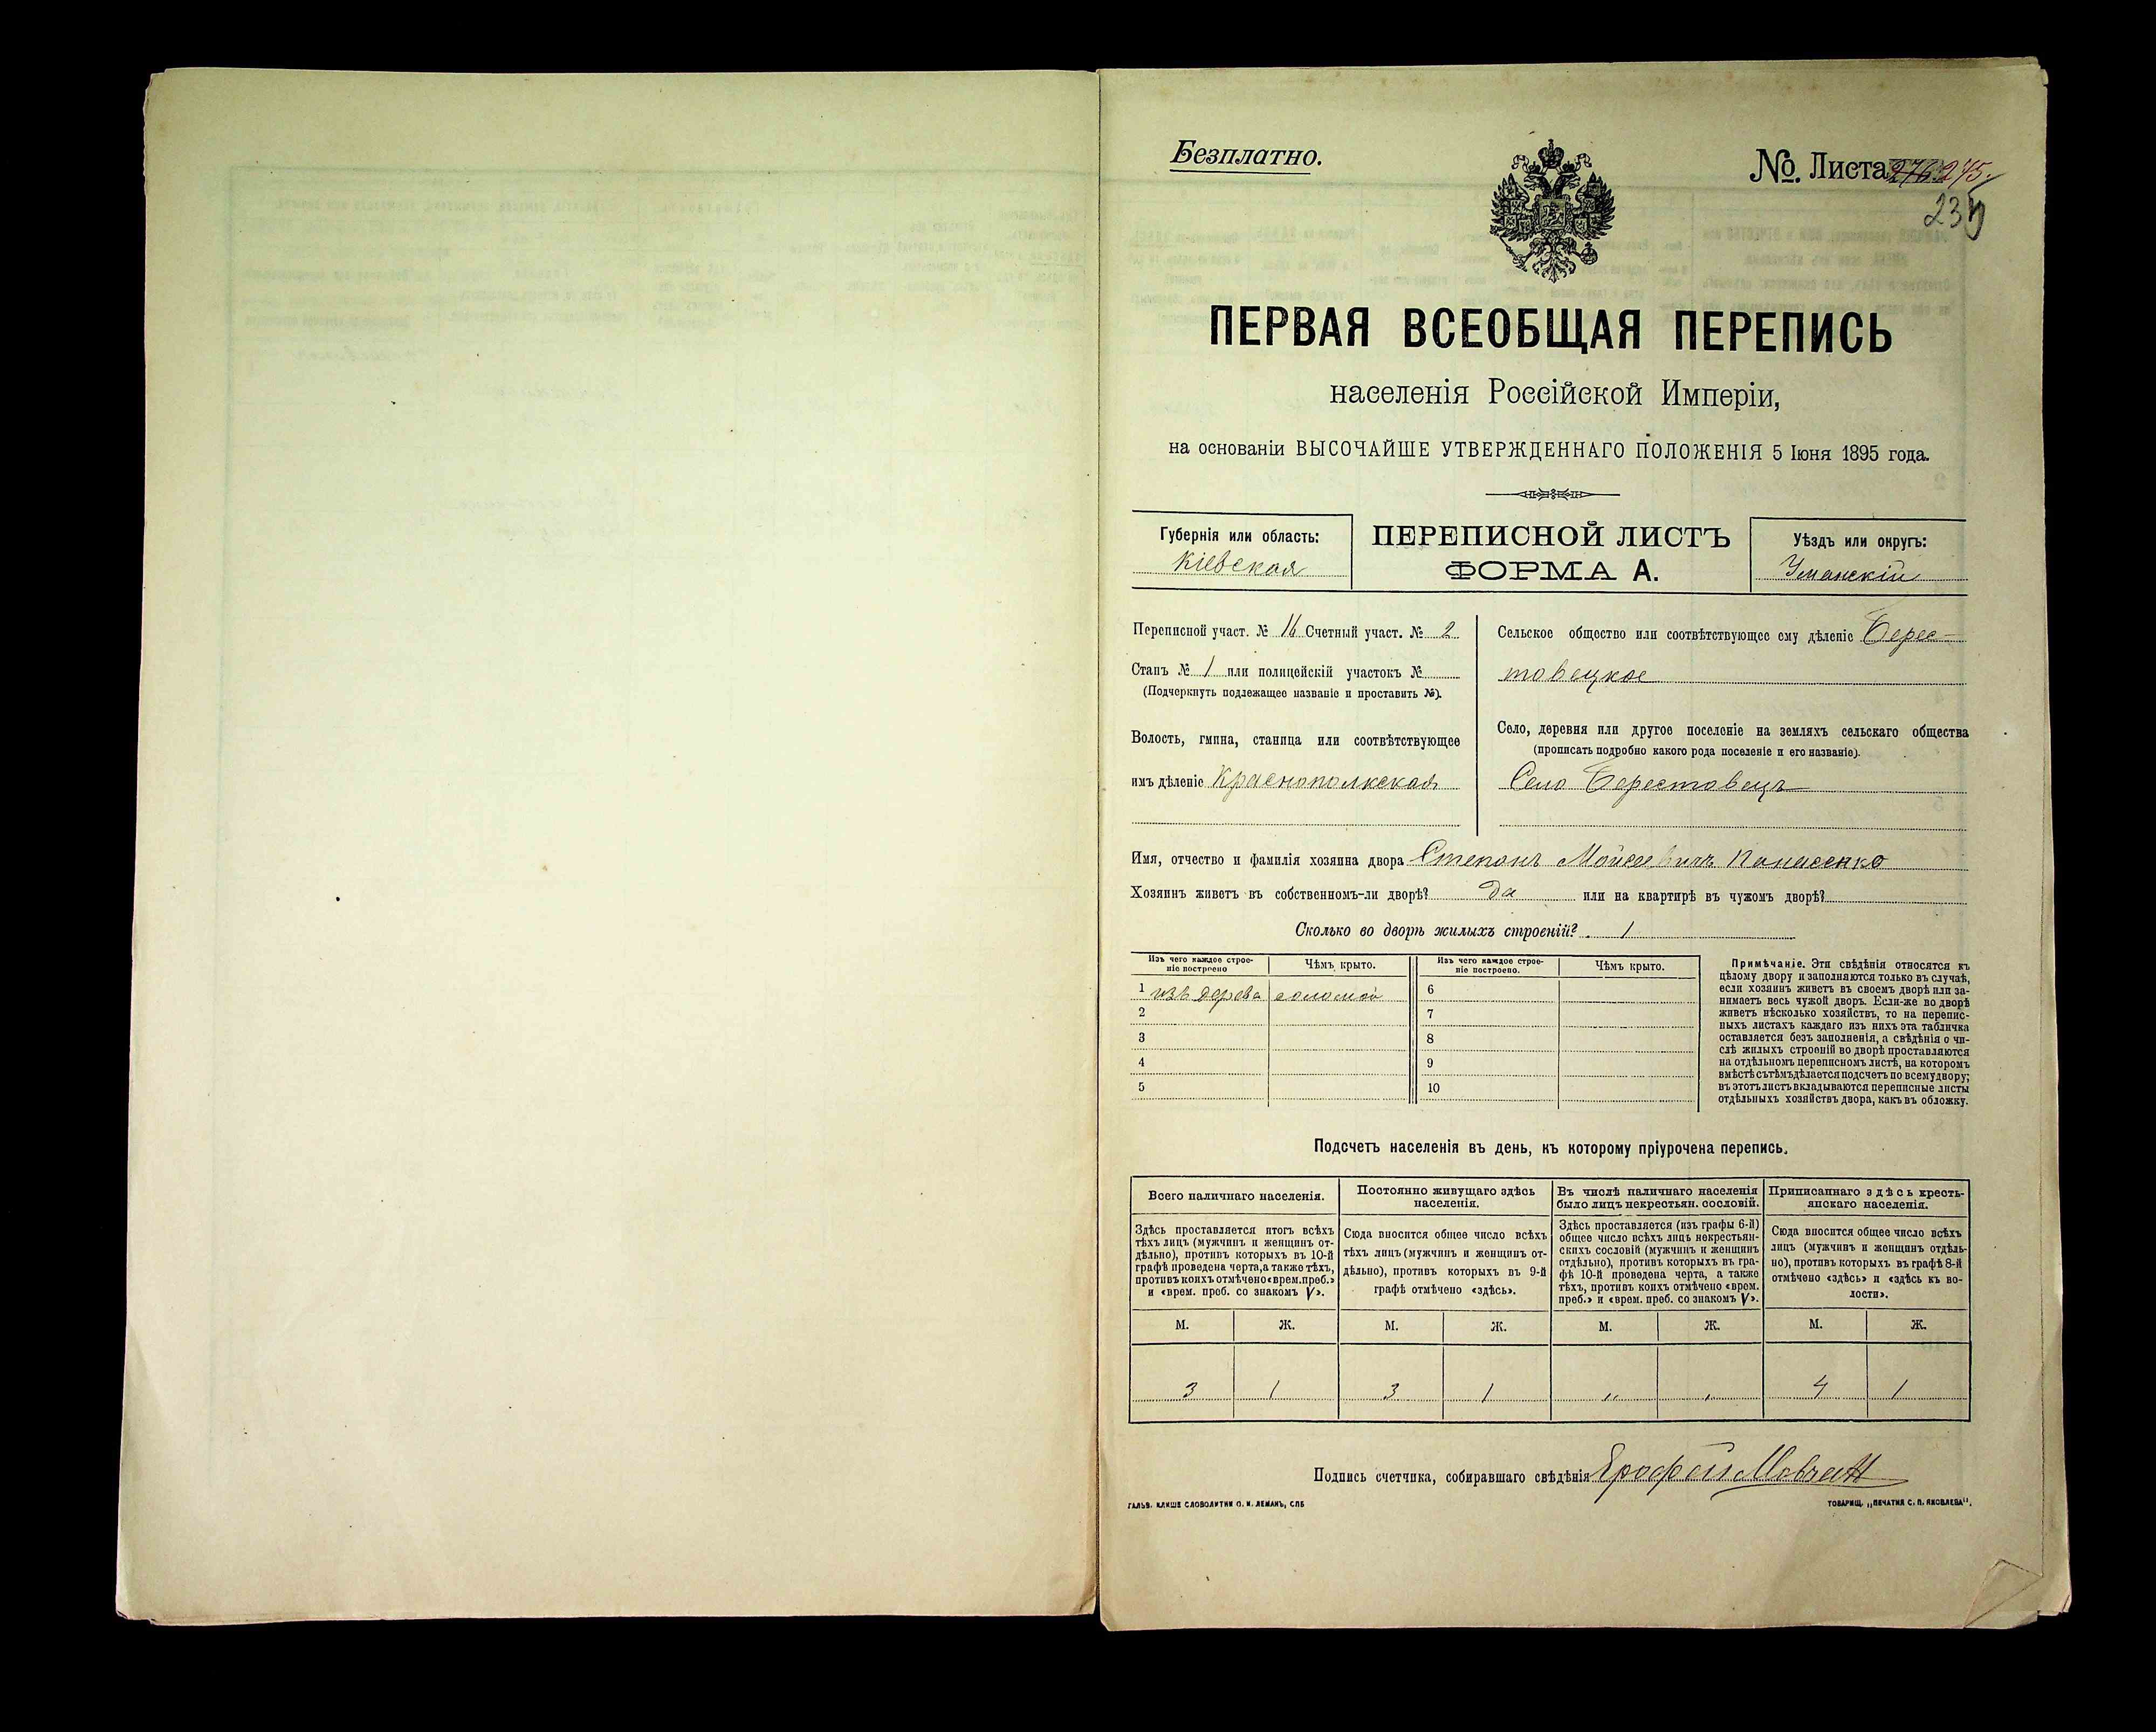 Безплатно.
№. Листа 245.
235
ПЕРВАЯ ВСЕОБЩАЯ ПЕРЕПИСЬ
населенія Россійской Имперіи,
на основаніи ВЫСОЧАЙШЕ УТВЕРЖДЕННАГО ПОЛОЖЕНІЯ 5 Іюня 1895 года.
Губернія или область:
Кіевская
ПЕРЕПИСНОЙ ЛИСТЪ
ФОРМА А.
Уѣздъ или округъ:
Уманскій
Переписной участ. № 16 Счетный участ. № 2
Станъ № 1 или полицейскій участокъ №
(Подчеркнуть подлежащее названіе и проставить №).
Волость, гмина, станица или соотвѣтствующее
имъ дѣленіе Краснополкская
Сельское общество или соотвѣтствующее ему дѣленіе Берес-
товецкое
Село, деревня или другое поселеніе на земляхъ сельскаго общества
(прописать подробно какого рода поселеніе и его названіе).
Село Берестовецъ
Имя, отчество и фамилія хозяина двора Степанъ Мойсеевичъ Панасенко
Хозяинъ живетъ въ собственномъ-ли дворѣ? да или на квартирѣ въ чужомъ дворѣ?
Сколько во дворѣ жилыхъ строеній? 1
Изъ чего каждое строе-
ніе построено
Чѣмъ крыто.
Изъ чего каждое строе-
ніе построено.
Чѣмъ крыто.
1 изъ дерева соломой 6
2 7
3 8
4 9
5 10
Примѣчаніе. Эти свѣдѣнія относятся къ
цѣлому двору и заполняются только въ случаѣ,
если хозяинъ живетъ въ своемъ дворѣ или за-
нимаетъ весь чужой дворъ. Если-же во дворѣ
живетъ нѣсколько хозяйствъ, то на перепис-
ныхъ листахъ каждаго изъ нихъ эта табличка
оставляется безъ заполненія, а свѣдѣнія о чи-
слѣ жилыхъ строеній во дворѣ проставляются
на отдѣльномъ переписномъ листѣ, на которомъ
вмѣстѣ съ тѣмъ дѣлается подсчетъ по всему двору;
въ этотъ листъ вкладываются переписные листы
отдѣльныхъ хозяйствъ двора, какъ въ обложку.
Подсчетъ населенія въ день, къ которому пріурочена перепись.
Всего наличнаго населенія.
Здѣсь проставляется итогъ всѣхъ
тѣхъ лицъ (мужчинъ и женщинъ от-
дѣльно), противъ которыхъ въ 10-й
графѣ проведена черта, а также тѣхъ,
противъ коихъ отмѣчено «врем. преб.»
и «врем. преб. со знакомъ V».
Постоянно живущаго здѣсь
населенія.
Сюда вносится общее число всѣхъ
тѣхъ лицъ (мужчинъ и женщинъ от-
дѣльно), противъ которыхъ въ 9-й
графѣ отмѣчено «здѣсь».
Въ числѣ наличнаго населенія
было лицъ некрестьян. сословій.
Здѣсь проставляется (изъ графы 6-й)
общее число всѣхъ лицъ некрестьян-
скихъ сословій (мужчинъ и женщинъ
отдѣльно), противъ которыхъ въ гра-
фѣ 10-й проведена черта, а также
тѣхъ, противъ коихъ отмѣчено «врем.
преб.» и «врем. преб. со знакомъ V».
Приписаннаго здѣсь кресть-
янскаго населенія.
Сюда вносится общее число всѣхъ
лицъ (мужчинъ и женщинъ отдѣль-
но), противъ которыхъ въ графѣ 8-й
отмѣчено «здѣсь» и «здѣсь къ во-
лости».
М. Ж. М. Ж. М. Ж. М. Ж.
3 1 3 1 „ „ 4 1
Подпись счетчика, собиравшаго свѣдѣнія Ерофей Мовчан
ГАЛЬВ. КЛИШЕ СЛОВОЛИТНИ О. И. ЛЕМАНЪ, СПБ
ТОВАРИЩ. „ПЕЧАТНЯ С. П. ЯКОВЛЕВА".